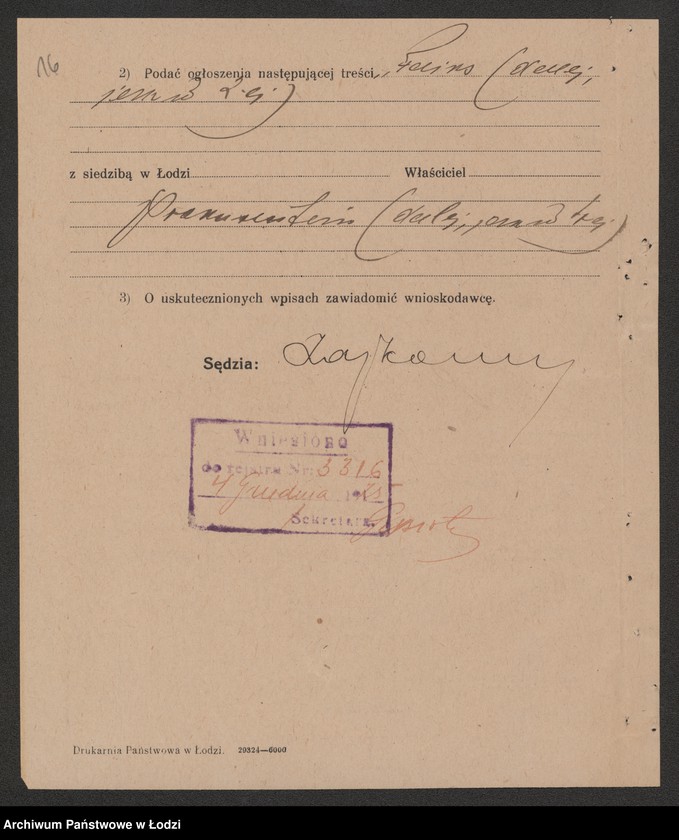 16
2) Podać ogłoszenia następującej treści (dalej,
jak w 2-ej)
z siedzibą w Łodzi Właściciel
(dalej, jak w 2-ej)
3) O uskutecznionych wpisach zawiadomić wnioskodawcę.
Sędzia:
Wniesiono
do rejestru Nr: 3316
4 grudnia 1925
Sekretarz:
Drukarnia Państwowa w Łodzi. 20324—6000
Archiwum Państwowe w Łodzi